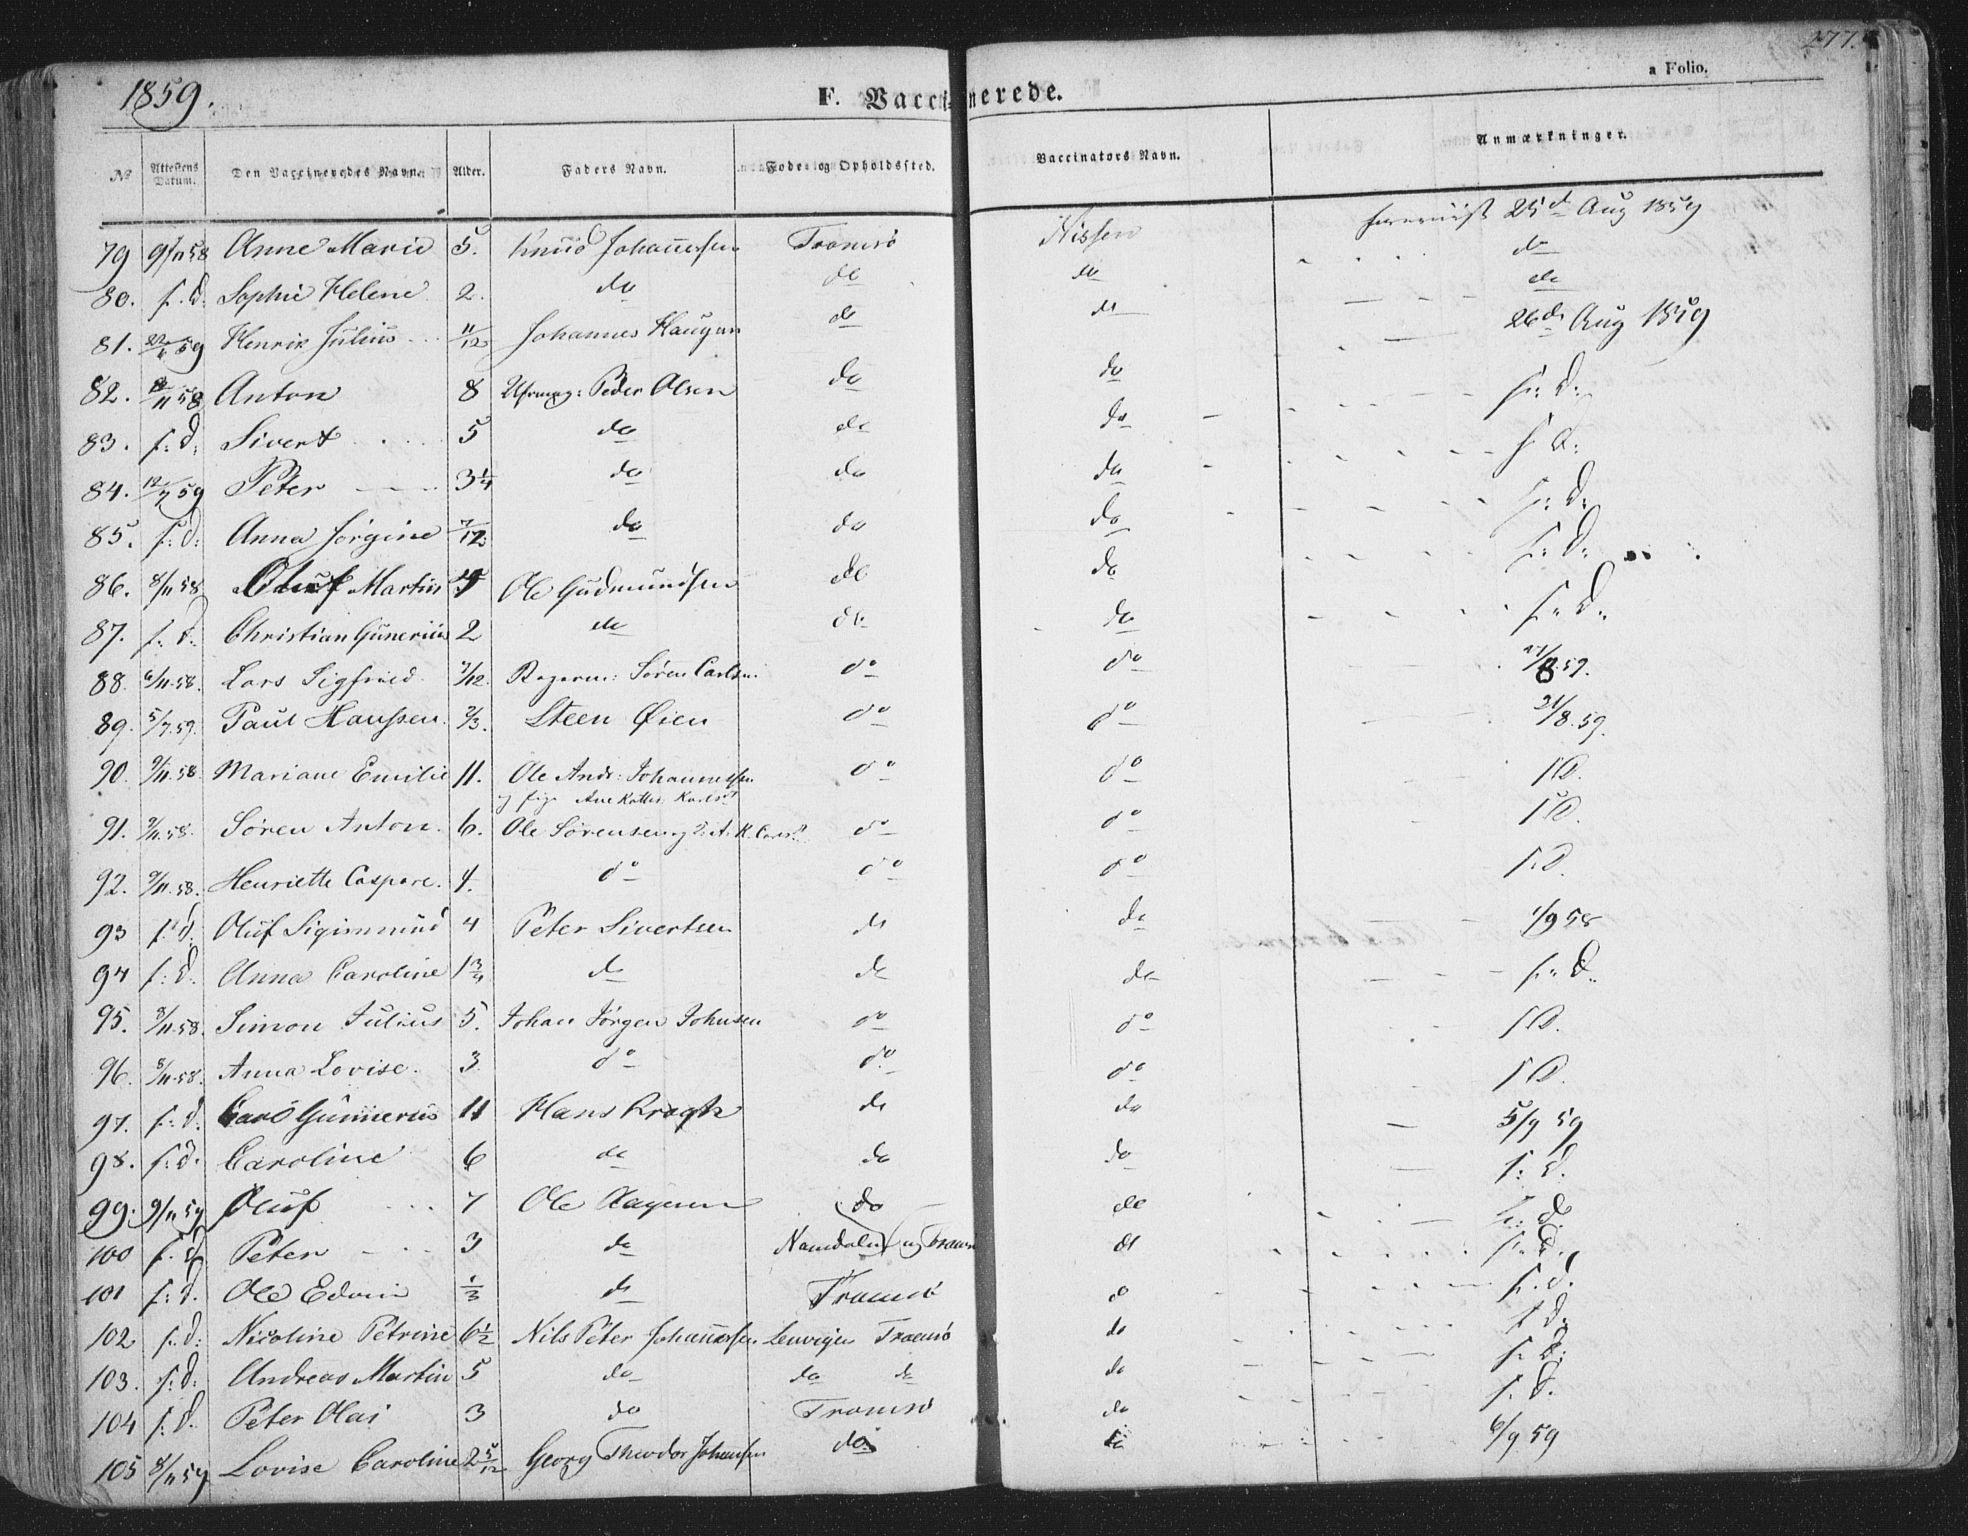 1859.
F. Vaccinerede.
277.
a Folio.
№ Attestens Datum. Den Vaccineredes Navn. Alder. Faders Navn. Føde- og Opholdssted. Vaccinators Navn. Anmærkninger.
79 9/11 58 Anne Marie 5. Knud Johannessen Tromsø Nissen 25d Aug 1859
80. s. d: Sophie Helene 2. do do do do
81. 59 Henrik Julius 11/12 Johannes Haugan do do do
26d Aug 1859
82. 11 58 Anton 8 Peder Olsen do do s: d:
83. s: d: Sivert 5 do do do s d:
84. 12/7 59 Peter 3 1/4 do do do s: d:
85. s: d: Anna Jørgine 7/12 do do do s: d:
86. 8/11 58 Oluf Martin Ole Gudmundsen do do s: d:
87. s. d. Christian Gunerius 2 do do do
88. 6/11 58. Lars Sigfried 7/12. Søren Carlsen do do 8 59.
89. 5/7 59. Paul Hanssen. 2/3. Steen Øien do do 21/8. 59.
90. 9/11. 58 Mariane Emilie 11. Ole Andr: Johannessen do do s D.
91. 9/11. 58. Søren Anton. 6. Ole Sørensen do do s D.
92. 9/11. 58. Henriette Caspare. 4. do do do s. D.
93 s: d. Oluf Sigismund 4 Peter Sivertsen do do 1/9 58
94 s: d. Anna Caroline 1 3/4 do do do s: d.
95. 8/11. 58. Simon Julius 5. Johan Jørgen Johnsen do do s D.
96. 8/11. 58. Anna Lovise. 3. do do do s D.
97. s: d. Carl Gunnerus 11 Hans Krogh do do 5/9 59
98. s: d. Caroline 6 do do do s: d.
99. 9/11 59 Oluf 7 Ole Aagesen do do s: d.
100 s. d Peter 3 do Namdalen og Tromsø do s. d.
101 s: d. Ole Edvin 1/3 do Tromsø do s. d.
102 s: d: Nicoline Petrine 6 1/2 Nils Peter Johannessen Lenvigen Tromsø do s d.
103. s: d: Andreas Martin 5 do do do do s. d.
104 s: d. Peter Olai 3 do Tromsø do s. d.
105 8/11 59 Lovise Caroline 2 5/12 Georg Theodor Johansen do do 6/9 59